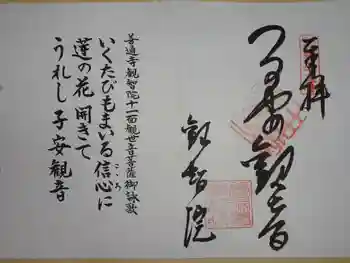 奉拝
子やす観世音
観智院
善通寺観智院十一面観世音菩薩御詠歌
いくたびもまいる信心に
こころ
蓮の花開きて
うれし子安観音